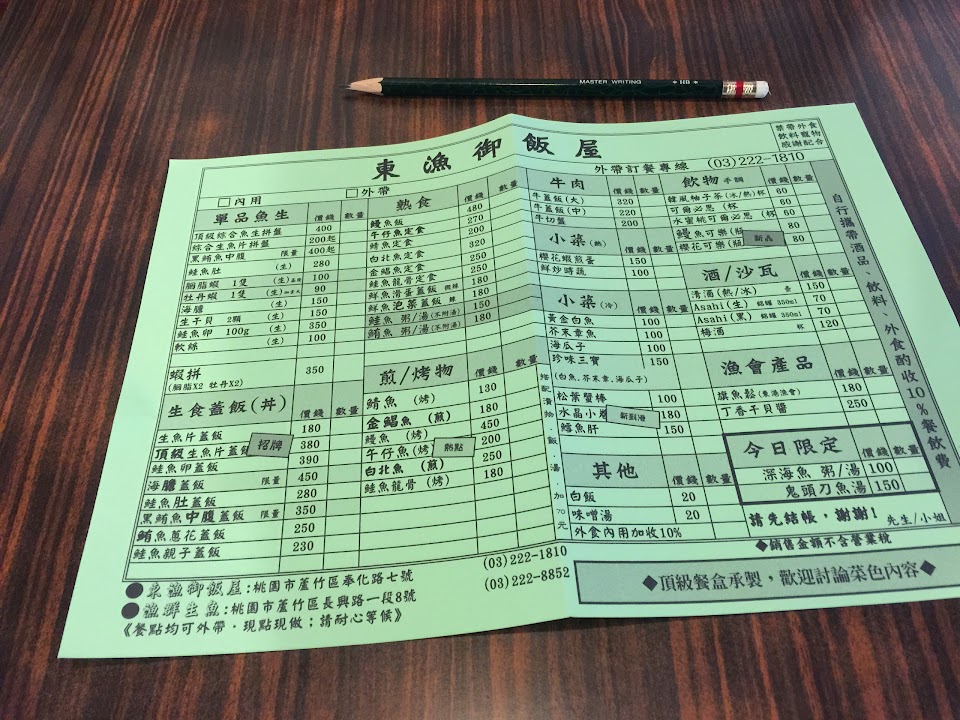 MASTER WRITING HB
東漁御飯屋
禁帶外食
飲料寵物
感謝配合
外帶訂餐專線 (03)222-1810
□內用 □外帶
單品魚生 價錢 數量
頂級綜合魚生拼盤 400
綜合生魚片拼盤 200起
黑鮪魚中腹 限量 400起
鮭魚肚 (生) 280
胭脂蝦 1隻 (生) 100
牡丹蝦 1隻 (生) 90
海膽 (生) 150
生干貝 2顆 (生) 150
鮭魚卵 100g (生) 350
軟絲 (生) 100
蝦拼 350
(胭脂X2 牡丹X2)
生食蓋飯(丼) 價錢 數量
生魚片蓋飯 180
頂級生魚片蓋飯 招牌 380
鮭魚卵蓋飯 390
海膽蓋飯 限量 450
鮭魚肚蓋飯 280
黑鮪魚中腹蓋飯 限量 350
鮪魚蔥花蓋飯 250
鮭魚親子蓋飯 230
熟食 價錢 數量
鰻魚飯 480
午仔魚定食 270
鯖魚定食 200
白北魚定食 320
金鯧魚定食 250
鮭魚龍骨定食 250
鮮魚滑蛋蓋飯 微辣 180
鮮魚泡菜蓋飯 辣 180
鮭魚 粥/湯(不附湯) 150
鮪魚 粥/湯(不附湯) 180
煎/烤物 價錢 數量
鯖魚 (烤) 130
金鯧魚 (煎) 180
鰻魚 (烤) 450
午仔魚(烤) 熱點 200
白北魚 (煎) 250
鮭魚龍骨 (烤) 180
牛肉 價錢 數量
牛蓋飯(大) 320
牛蓋飯(中) 220
牛切盤 200
小菜(熱) 價錢 數量
櫻花蝦煎蛋 150
鮮炒時蔬 100
小菜(冷) 價錢 數量
黃金白魚 100
芥末章魚 100
海瓜子 100
珍味三寶 150
(白魚.芥末章.海瓜子)
松葉蟹棒 100
水晶小卷 新到港 180
鱈魚肝 150
搭配漬物、飯、湯,加70元
其他 價錢 數量
白飯 20
味噌湯 20
外食內用加收10%
飲物 手調 價錢 數量
韓風柚子茶(冰/熱)杯 60
可爾必思 (杯 60
水蜜桃可爾必思 (杯 60
鰻魚可樂(瓶 新品 80
櫻花可樂(瓶 80
酒/沙瓦 價錢 數量
清酒(熱/冰) 壺 150
Asahi(生) 鋁罐 350ml 70
Asahi(黑) 鋁罐 350ml 70
梅酒 杯 120
漁會產品 價錢 數量
旗魚鬆(東港漁會) 180
丁香干貝醬 250
今日限定 價錢 數量
深海魚 粥/湯 100
鬼頭刀魚湯 150
請先結帳,謝謝! 先生/小姐
◆銷售金額不含營業稅
自行攜帶酒品、飲料、外食酌收10%餐飲費
●東漁御飯屋:桃園市蘆竹區奉化路七號 (03)222-1810
●漁群生魚:桃園市蘆竹區長興路一段8號 (03)222-8852
《餐點均可外帶.現點現做;請耐心等候》
◆頂級餐盒承製,歡迎討論菜色內容◆